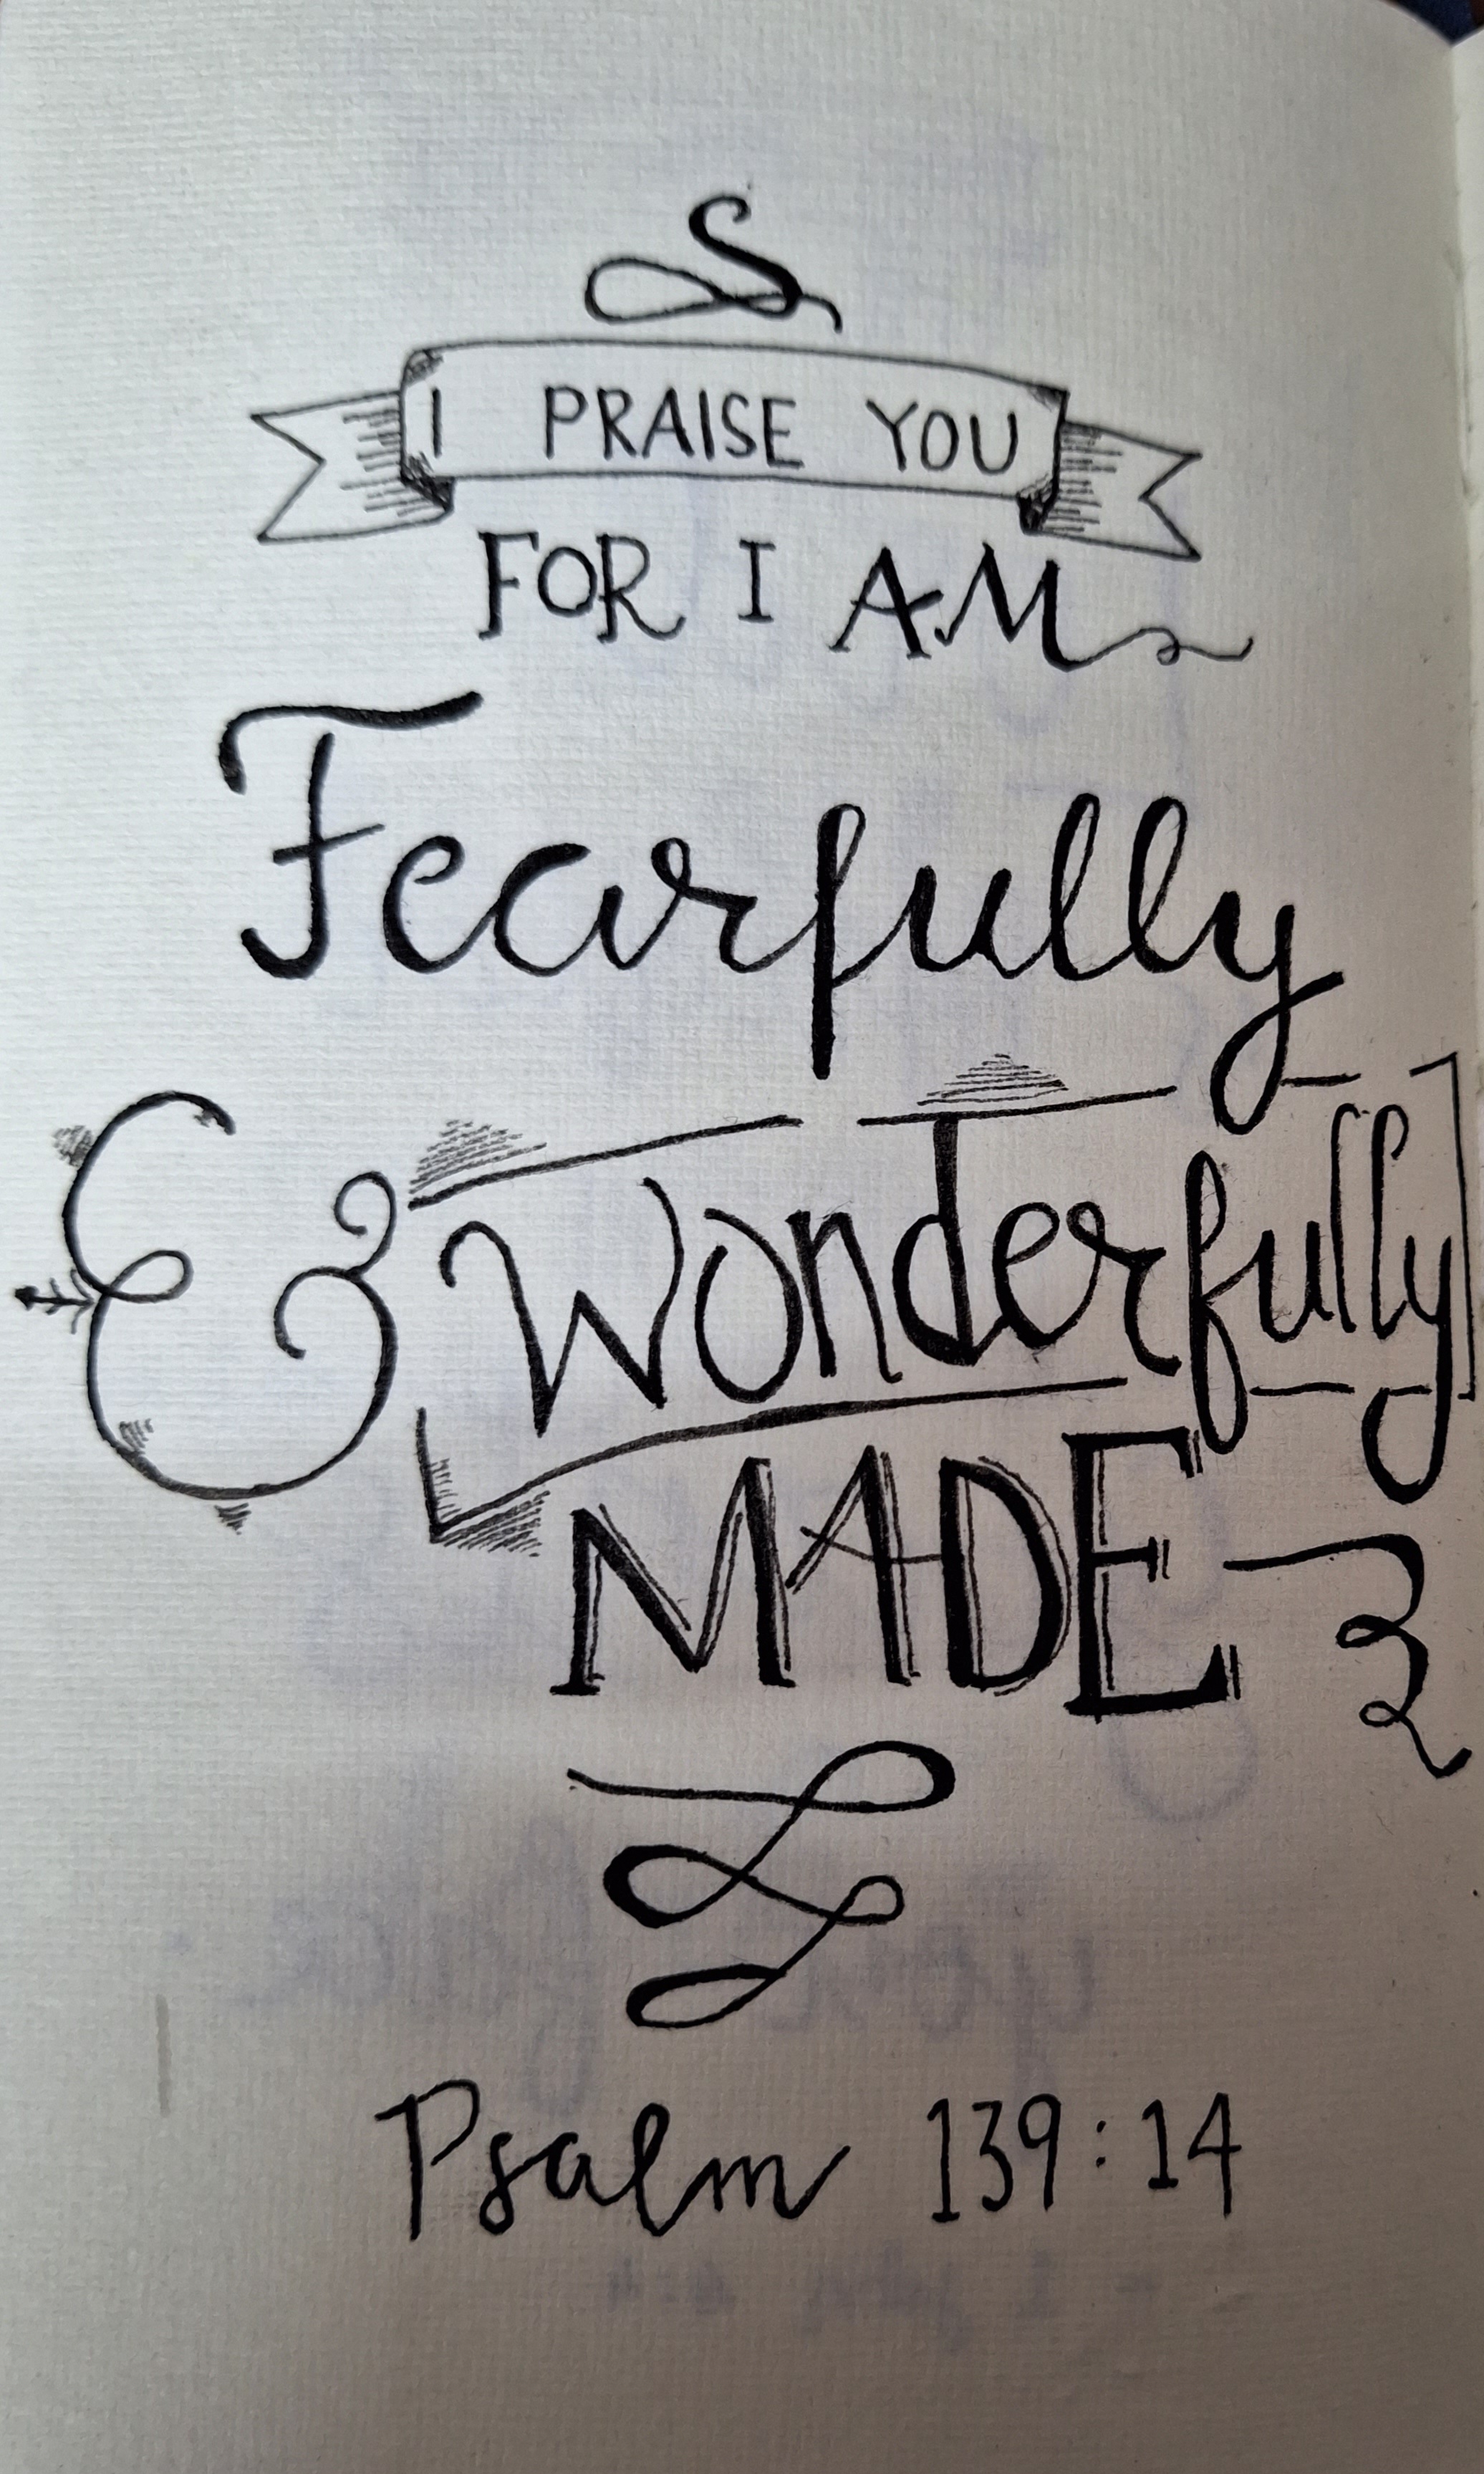 I PRAISE YOU
FOR I AM
Fearfully
& Wonderfully
MADE
Psalm 139:14